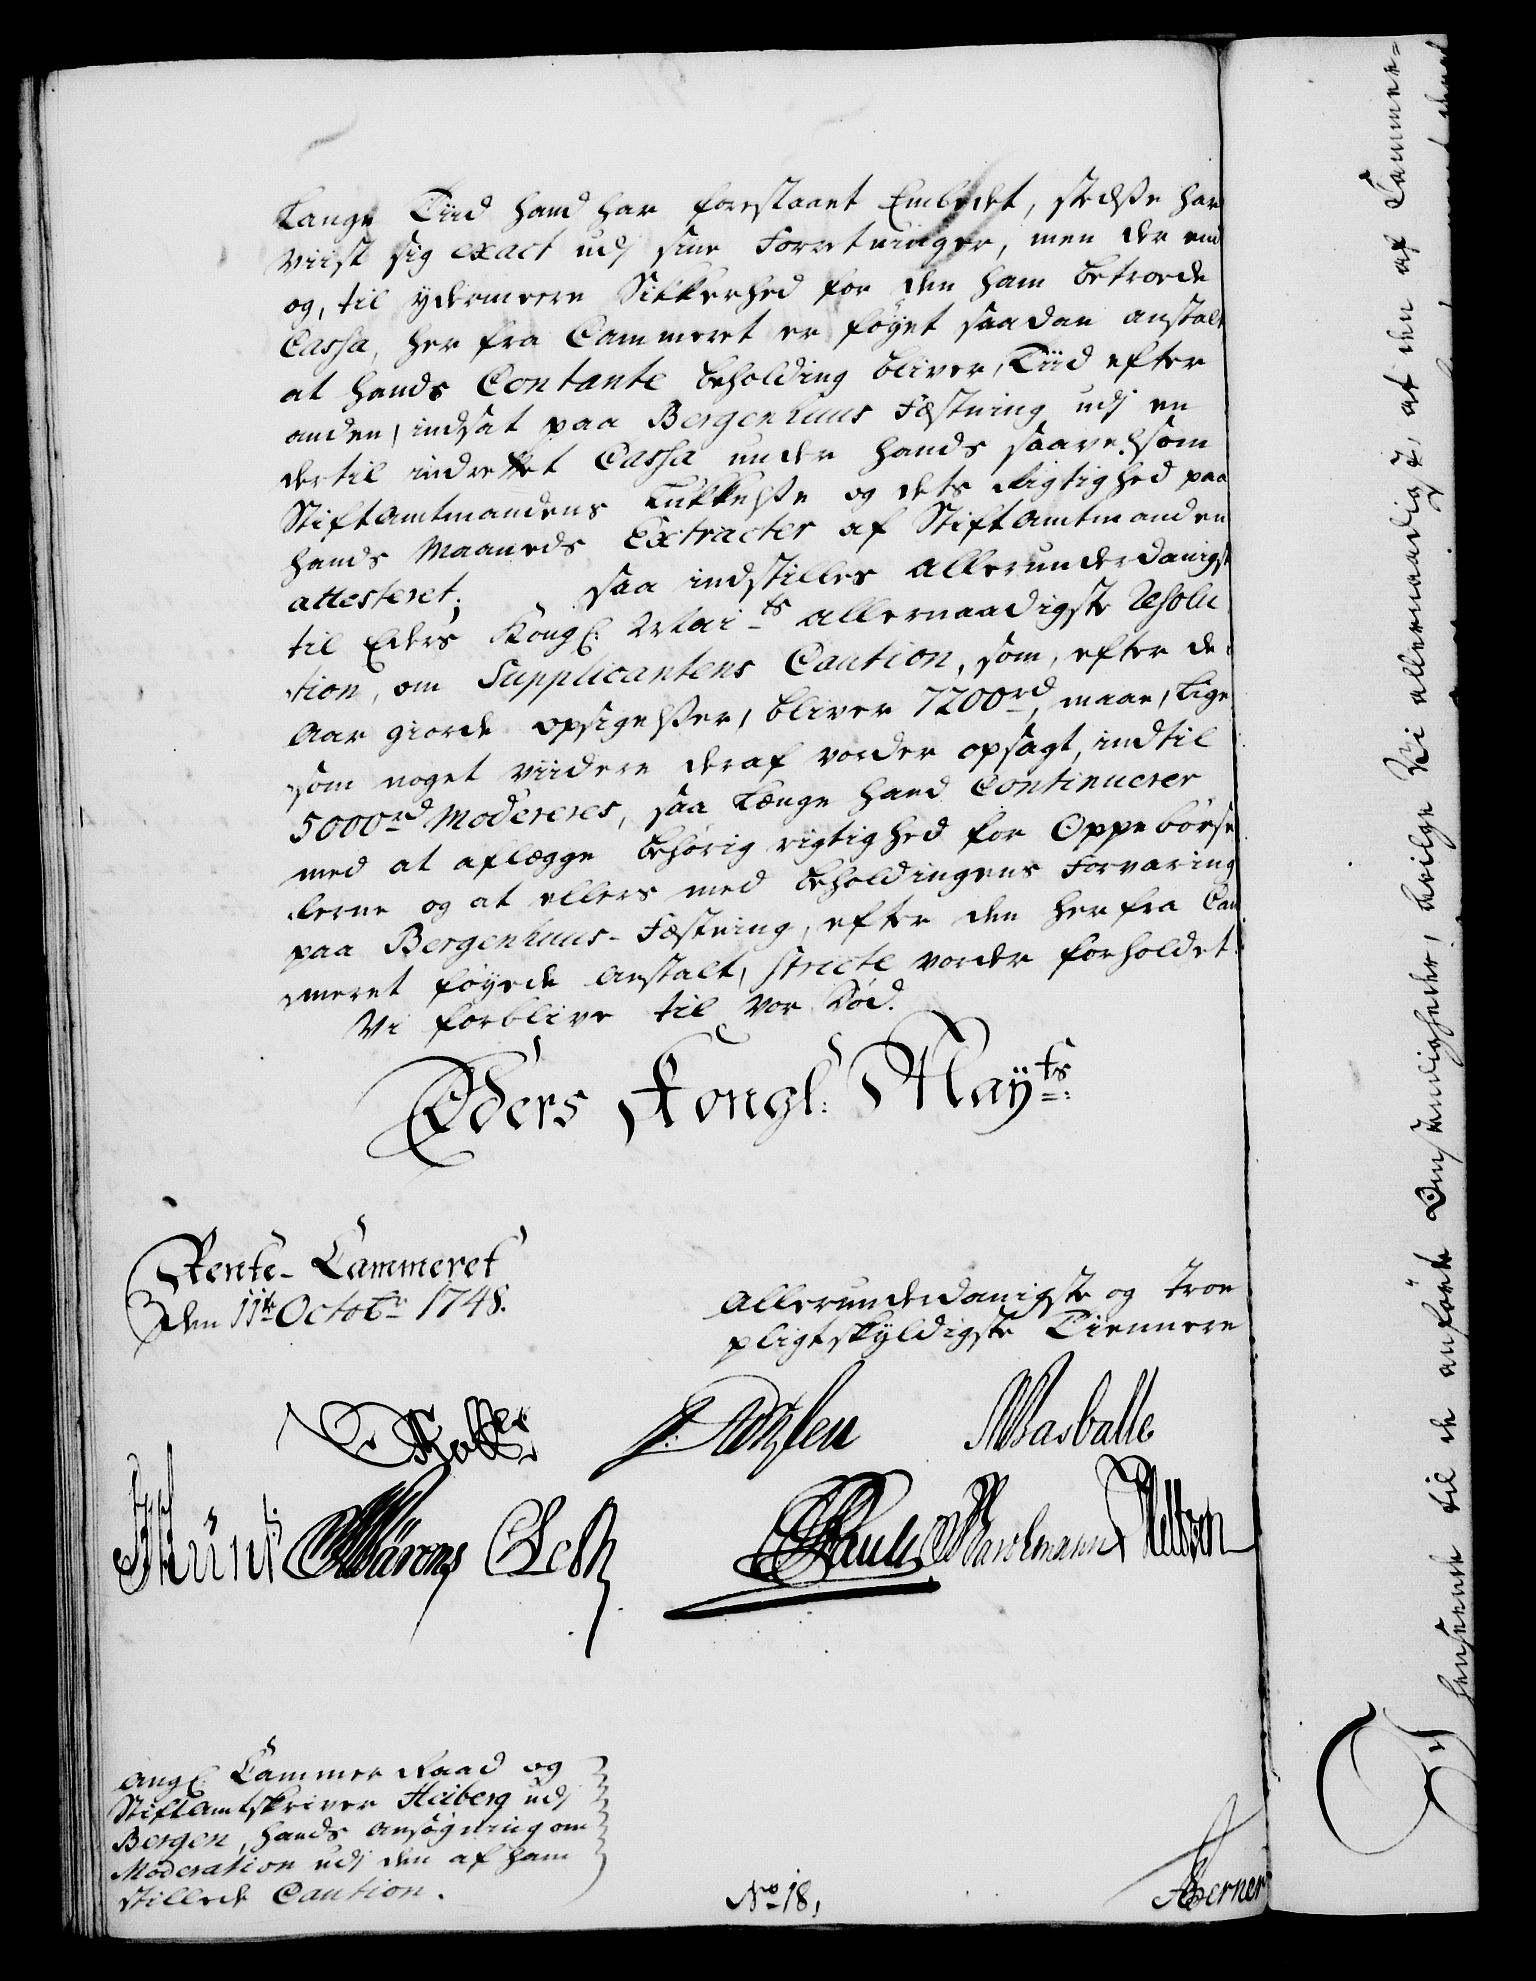 Lange Tiid hand har forestaaet Embedet, stedsse har
viist sig exact udj sine Forretninger, men der end
og, til ydermeere Sikkerhed for den ham betroede
Cassa, her fra Cammeret er føyet saadan anstalt
at hands Contante beholding bliver, Tiid efter
anden, indsat paa Bergenhuus Fæstning udj en
dertil indrettet Cassa under hands saavelsom
Stiftamtmandens Lukkelsse og dets Rigtighed paa
hands Maaneds Extracter af Stiftamtmanden
attesteret; saa indstilles allerunderdanigst
til Eders Kongl: Mai-ts allernaadigste Resolu
tion, om Supplicantens Caution, som, efter de
Aar giorde opsigelsser, bliver 7200rd, maae, lige
som noget viidere deraf vorder opsagt, indtil
5000rd. Modereres, saa længe hand Continuerer
med at aflægge behørig rigtighed for Oppebørse
lerne og at ellers med beholdingens Forvaring
paa Bergenhuus-Fæstning, efter den her fra Cam
meret føyede anstalt, stricte vorder forholdet.
Vi forblive til vor Død.
Eders Kongl: May-ts:
Rente-Cammeret
den 11te Octobr 1748.
Allerunderdanigste og troe
pligtskyldigste Tiennere
Masballe
Pauli
Ang: Cammer Raad og
Stiftamtskriver Heiberg udj
Bergen, hands ansøgning om
Moderation udj den af ham
stillede Caution.
No 18,
Berner
I
henseende til de anførte Omstændigheder, bevilge Vi allernaadigst, at den af Cammer=